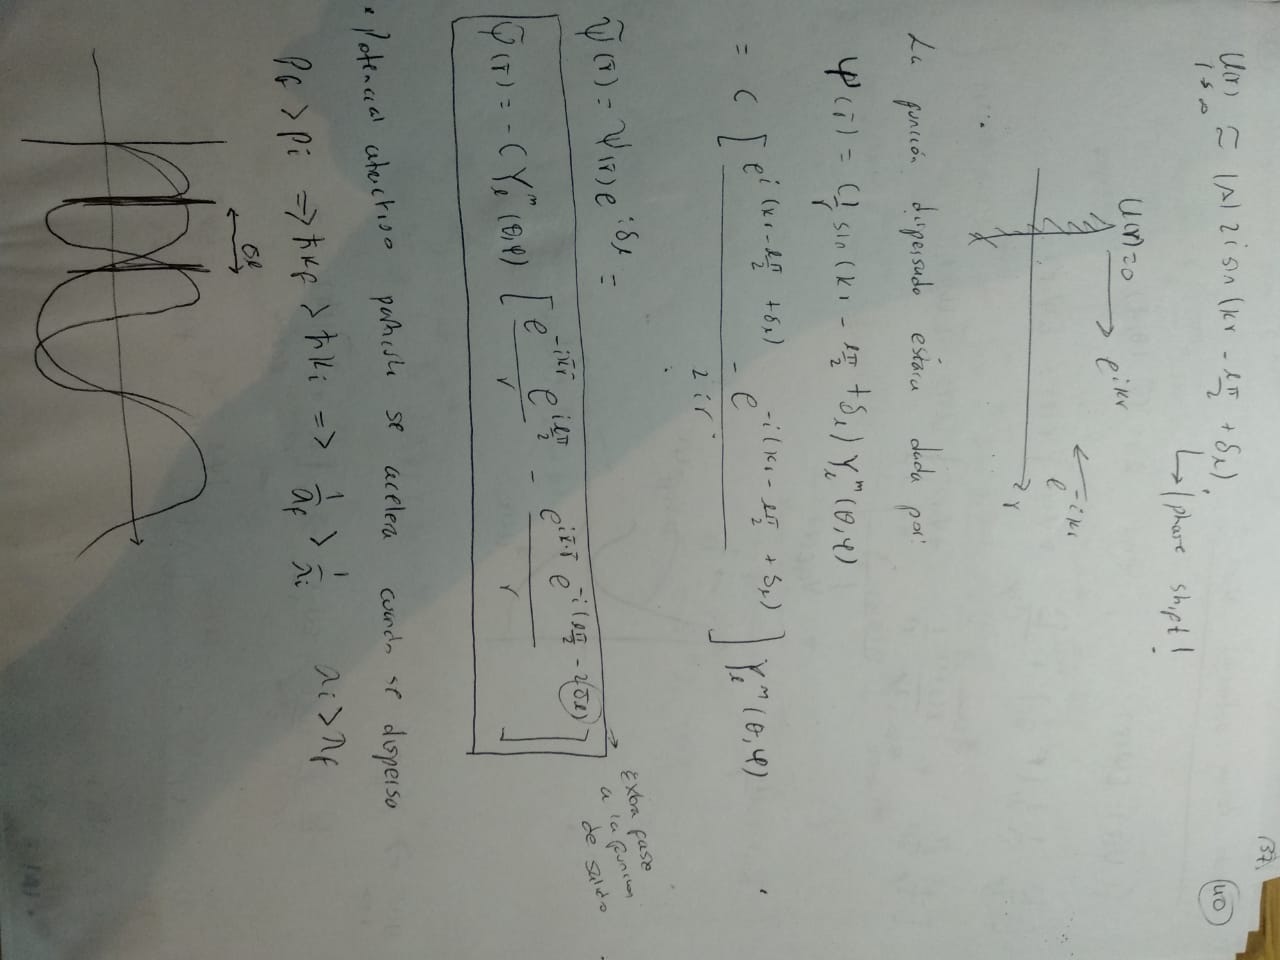 (37)
40
U(r) ≈ |A| 2i sin(kr - lπ/2 + δl)
r→∞
↳ phase shipt!
U(r)=0
e^{ikr}
e^{-ikr}
r
La función dispersada estára dada por:
Ψ(r̄) = C 1/r sin(kr - lπ/2 + δl) Y_l^m(θ,φ)
= C [ (e^{i(kr - lπ/2 + δl)} - e^{-i(kr - lπ/2 + δl)}) / 2ir ] Y_l^m(θ,φ)
Ψ̃(r̄) = Ψ(r̄) e^{iδl} =
Ψ̃(r̄) = - C Y_l^m(θ,φ) [ e^{-ik̄r̄} e^{ilπ/2} / r - e^{ik̄·r̄} e^{-i(lπ/2 - 2δl)} / r ]
→ Extra fase
a la función
de salida
• Potencial atractivo particula se acelera cuando se dispersa
Pf > Pi => ħkf > ħki => 1/λf > 1/λi λi > λf
δl